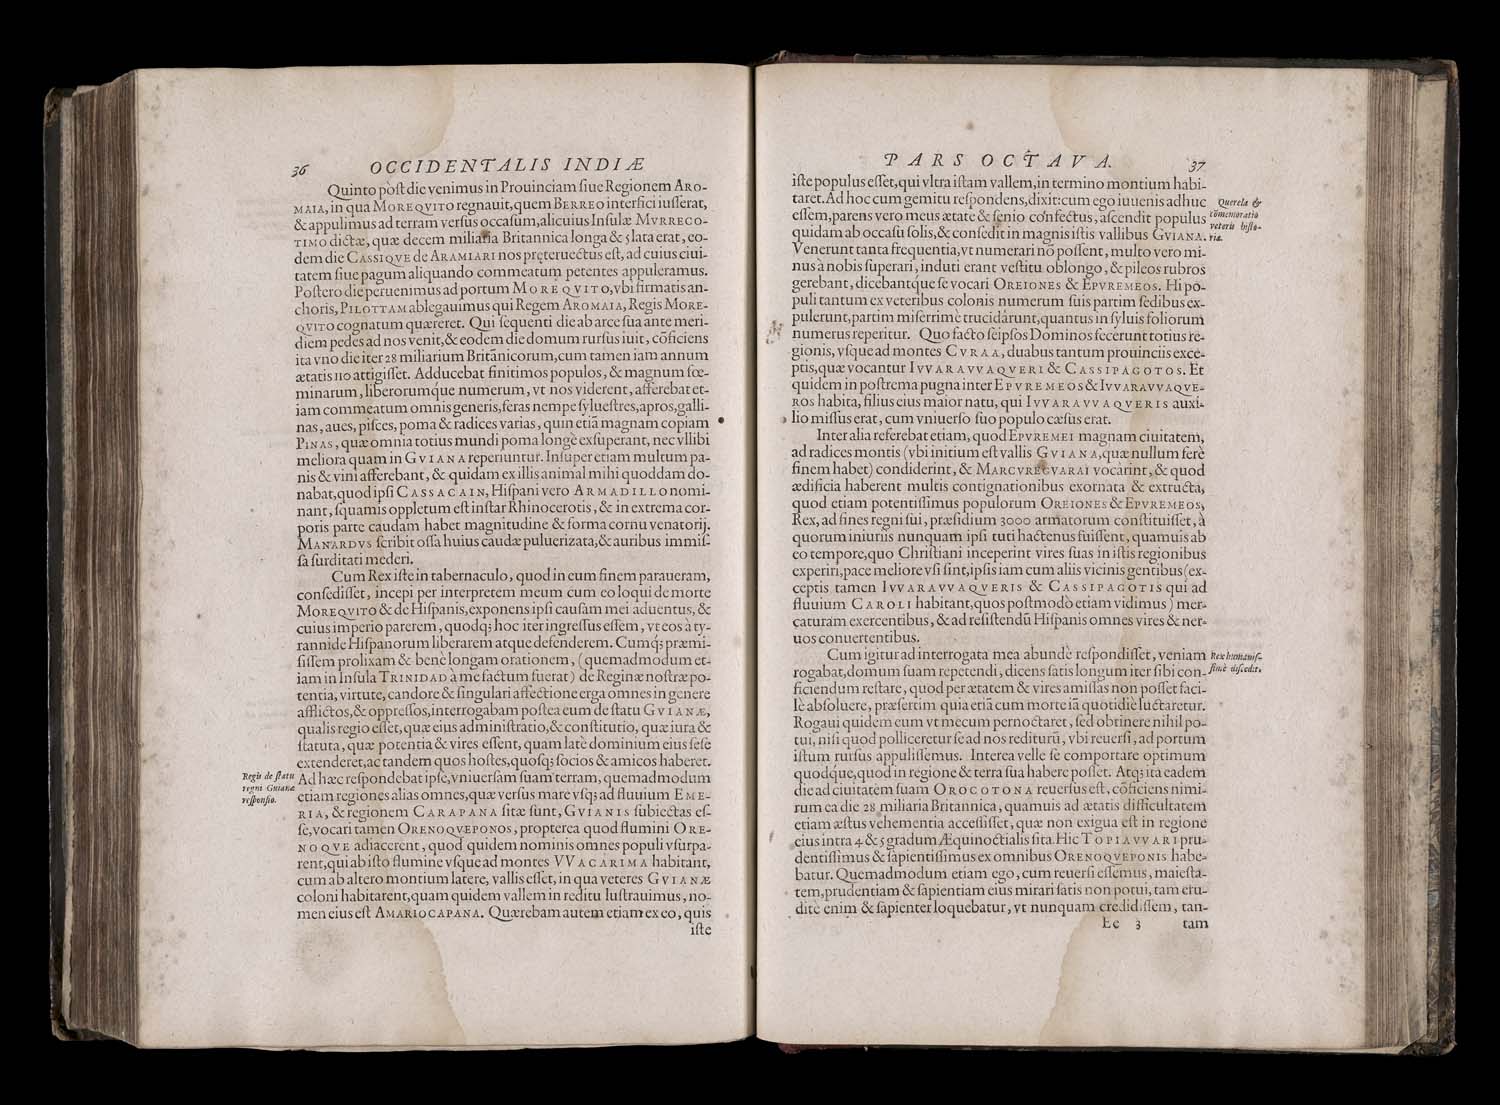 36 OCCIDENTALIS INDIÆ
Quinto poſt die venimus in Prouinciam ſiue Regionem ARO-
MAIA, in qua MOREQVITO regnauit, quem BERREO interfici iuſſerat,
& appulimus ad terram verſus occaſum, alicuius Inſulæ MVRRECO-
TIMO dictæ, quæ decem miliaria Britannica longa & 5 lata erat, eo-
dem die CASSIQVE de ARAMIARI nos pręteruectus eſt, ad cuius ciui-
tatem ſiue pagum aliquando commeatum petentes appuleramus.
Poſtero die peruenimus ad portum MOREQVITO, vbi firmatis an-
choris, PILOTTAM ablegauimus qui Regem AROMAIA, Regis MORE-
QVITO cognatum quæreret. Qui ſequenti die ab arce ſua ante meri-
diem pedes ad nos venit, & eodem die domum rurſus iuit, cõficiens
ita vno die iter 28 miliarium Britãnicorum, cum tamen iam annum
ætatis 110 attigiſſet. Adducebat finitimos populos, & magnum fœ-
minarum, liberorumq́ue numerum, vt nos viderent, afferebat et-
iam commeatum omnis generis, feras nempe ſylueſtres, apros, galli-
nas, aues, piſces, poma & radices varias, quin etiã magnam copiam
PINAS, quæ omnia totius mundi poma longè exſuperant, nec vllibi
meliora quam in GVIANA reperiuntur. Inſuper etiam multum pa-
nis & vini afferebant, & quidam ex illis animal mihi quoddam do-
nabat, quod ipſi CASSACAIN, Hiſpani vero ARMADILLO nomi-
nant, ſquamis oppletum eſt inſtar Rhinocerotis, & in extrema cor-
poris parte caudam habet magnitudine & forma cornu venatorij.
MANARDVS ſcribit oſſa huius caudæ puluerizata, & auribus immiſ-
ſa ſurditati mederi.
Cum Rex iſte in tabernaculo, quod in eum finem paraueram,
conſediſſet, incepi per interpretem meum cum eo loqui de morte
MOREQVITO & de Hiſpanis, exponens ipſi cauſam mei aduentus, &
cuius imperio parerem, quodq; hoc iter ingreſſus eſſem, vt eos à ty-
rannide Hiſpanorum liberarem atque defenderem. Cumq́; præmi-
ſiſſem prolixam & benè longam orationem, (quemadmodum et-
iam in Inſula TRINIDAD à me factum fuerat) de Reginæ noſtræ po-
tentia, virtute, candore & ſingulari affectione erga omnes in genere
afflictos, & oppreſſos, interrogabam poſtea eum de ſtatu GVIANÆ,
qualis regio eſſet, quæ eius adminiſtratio, & conſtitutio, quæ iura &
ſtatuta, quæ potentia & vires eſſent, quam latè dominium eius ſeſe
extenderet, ac tandem quos hoſtes, quoſq; ſocios & amicos haberet.
Regis de ſtatu
regni Guianæ
reſponſio.
Ad hæc reſpondebat ipſe, vniuerſam ſuam terram, quemadmodum
etiam regiones alias omnes, quæ verſus mare vſq; ad fluuium EME-
RIA, & regionem CARAPANA ſitæ ſunt, GVIANIS ſubiectas eſ-
ſe, vocari tamen ORENOQVEPONOS, propterea quod flumini ORE-
NOQVE adiacerent, quod quidem nominis omnes populi vſurpa-
rent, qui ab iſto flumine vſque ad montes VVACARIMA habitant,
cum ab altero montium latere, vallis eſſet, in qua veteres GVIANÆ
coloni habitarent, quam quidem vallem in reditu luſtrauimus, no-
men eius eſt AMARIOCAPANA. Quærebam autem etiam ex eo, quis
iſte
PARS OCTAVA. 37
iſte populus eſſet, qui vltra iſtam vallem, in termino montium habi-
taret. Ad hoc cum gemitu reſpondens, dixit: cum ego iuuenis adhuc
eſſem, parens vero meus ætate & ſenio confectus, aſcendit populus
quidam ab occaſu ſolis, & conſedit in magnis iſtis vallibus GVIANA.
Querela &
cõmemoratio
veteris hiſto-
riæ.
Venerunt tanta frequentia, vt numerari nõ poſſent, multo vero mi-
nus à nobis ſuperari, induti erant veſtitu oblongo, & pileos rubros
gerebant, dicebantq́ue ſe vocari OREIONES & EPVREMEOS. Hi po-
puli tantum ex veteribus colonis numerum ſuis partim ſedibus ex-
pulerunt, partim miſerrimè trucidârunt, quantus in ſyluis foliorum
numerus reperitur. Quo facto ſeipſos Dominos fecerunt totius re-
gionis, vſque ad montes CVRAA, duabus tantum prouinciis exce-
ptis, quæ vocantur IVVARAVVAQVERI & CASSIPAGOTOS. Et
quidem in poſtrema pugna inter EPVREMEOS & IVVARAVVAQVE-
ROS habita, filius eius maior natu, qui IVVARAVVAQVERIS auxi-
lio miſſus erat, cum vniuerſo ſuo populo cæſus erat.
Inter alia referebat etiam, quod EPVREMEI magnam ciuitatem,
ad radices montis (vbi initium eſt vallis GVIANA, quæ nullum ferè
finem habet) condiderint, & MARCVREGVARAI vocàrint, & quod
ædificia haberent multis contignationibus exornata & extructa,
quod etiam potentiſſimus populorum OREIONES & EPVREMEOS,
Rex, ad fines regni ſui, præſidium 3000 armatorum conſtituiſſet, à
quorum iniuriis nunquam ipſi tuti hactenus fuiſſent, quamuis ab
eo tempore, quo Chriſtiani inceperint vires ſuas in iſtis regionibus
experiri, pace meliore vſi ſint, ipſis iam cum aliis vicinis gentibus (ex-
ceptis tamen IVVARAVVAQVERIS & CASSIPAGOTIS qui ad
fluuium CAROLI habitant, quos poſtmodò etiam vidimus) mer-
caturam exercentibus, & ad reſiſtendũ Hiſpanis omnes vires & ner-
uos conuertentibus.
Cum igitur ad interrogata mea abundè reſpondiſſet, veniam
rogabat, domum ſuam repetendi, dicens ſatis longum iter ſibi con-
Rex humaniſ-
ſimè diſcedit.
ficiendum reſtare, quod per ætatem & vires amiſſas non poſſet faci-
lè abſoluere, præſertim quia etiã cum morte iã quotidiè luctaretur.
Rogaui quidem eum vt mecum pernoctaret, ſed obtinere nihil po-
tui, niſi quod polliceretur ſe ad nos rediturũ, vbi reuerſi, ad portum
iſtum rurſus appuliſſemus. Interea velle ſe comportare optimum
quodq́ue, quod in regione & terra ſua habere poſſet. Atq; ita eadem
die ad ciuitatem ſuam OROCOTONA reuerſus eſt, cõficiens nimi-
rum ea die 28 miliaria Britannica, quamuis ad ætatis difficultatem
etiam æſtus vehementia acceſſiſſet, quæ non exigua eſt in regione
eius intra 4 & 5 gradum Æquinoctialis ſita. Hic TOPIAVVARI pru-
dentiſſimus & ſapientiſſimus ex omnibus ORENOQVEPONIS habe-
batur. Quemadmodum etiam ego, cum reuerſi eſſemus, maieſta-
tem, prudentiam & ſapientiam eius mirari ſatis non potui, tam eru-
ditè enim & ſapienter loquebatur, vt nunquam credidiſſem, tan-
Ee 3 tam